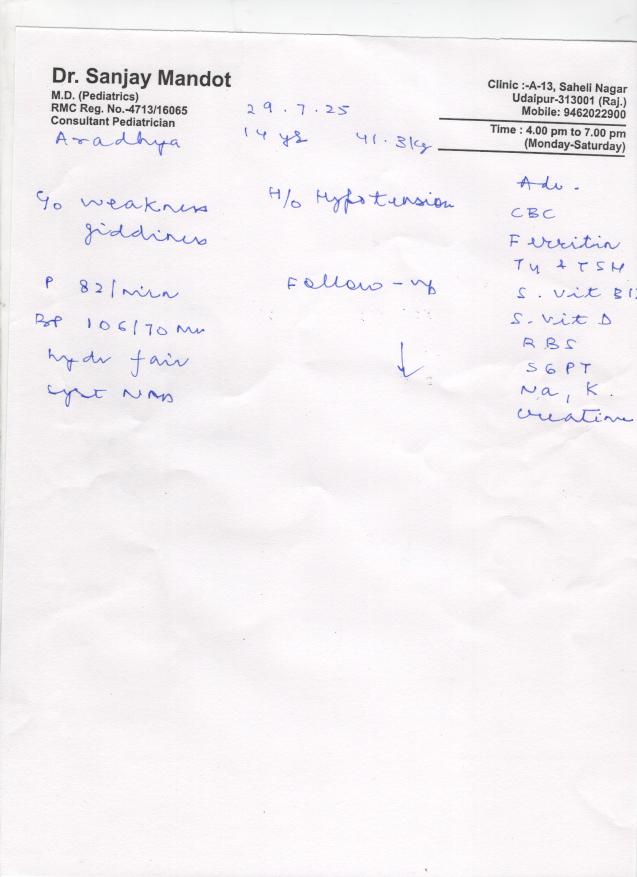 Dr. Sanjay Mandot
M.D. (Pediatrics)
RMC Reg. No.-4713/16065
Consultant Pediatrician
Clinic :-A-13, Saheli Nagar
Udaipur-313001 (Raj.)
Mobile: 9462022900
Time : 4.00 pm to 7.00 pm
(Monday-Saturday)
29.7.25
Aradhya 14 ys 41.3kg
C/o weakness
giddiness
H/o Hypotension
P 82/min
BP 106/70 mm
hydr fair
syst NAD
Follow-up
Adv.
CBC
Ferritin
T4 & TSH
S. Vit B12
S. Vit D
RBS
SGPT
Na, K.
Creatinine